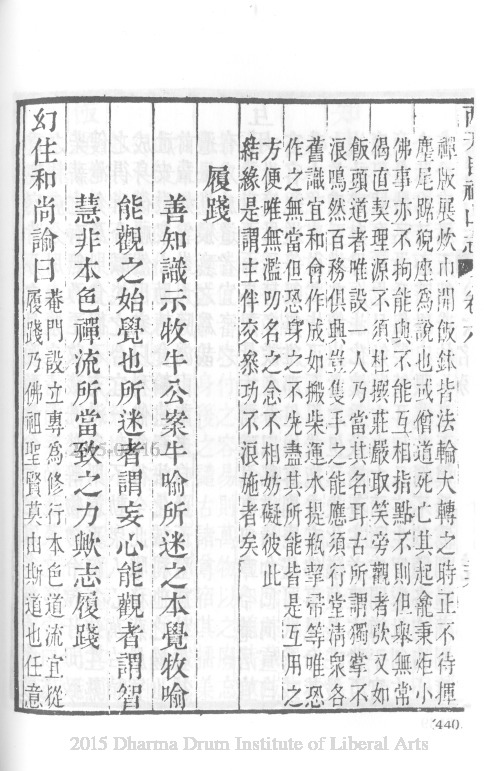 西天目祖山志 卷六
禪版展炊巾開飯鉢皆法輪大轉之時正不待揮
麈尾踞猊座為說也或僧道死亡其起龕秉炬小
佛事亦不拘能與不能互相指點不則但舉無常
偈直契理源不須杜撰莊嚴取笑旁觀者歟又如
飯頭道者唯設一人乃當其名耳古所謂獨掌不
浪鳴然百務俱興豈隻手之能應須行堂清衆各
舊識宜和會作成如搬柴運水提瓶挈帚等唯恐
作之無當但恐身之不先盡其所能皆是互用之
方便唯無濫叨名之念不相妨礙彼此
結緣是謂主伴交叅功不浪施者矣
履踐
善知識示牧牛公案牛喻所迷之本覺牧喻
能觀之始覺也所迷者謂妄心能觀者謂智
慧非本色禪流所當致之力歟志履踐
幻住和尚諭曰菴門設立專為修行本色道流宜從
履踐乃佛祖聖賢莫由斯道也任意
440
2015 Dharma Drum Institute of Liberal Arts